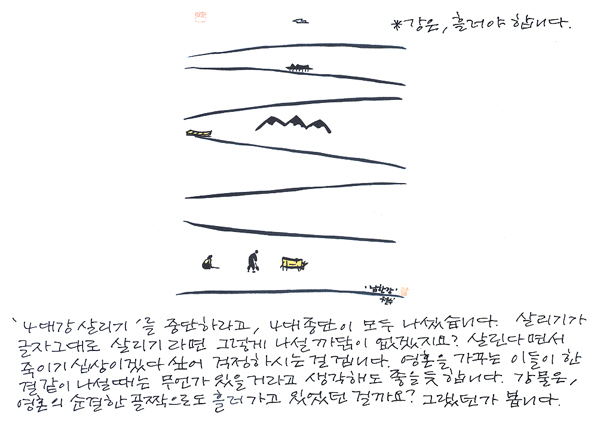 *강은, 흘러야 합니다.
'남한강'
철수
'4대강 살리기'를 중단하라고, 4대종단이 모두 나섰습니다. 살리기가
글자그대로 살리기 라면 그렇게 나설 까닭이 없겠지요? 살린다면서
죽이기 십상이겠다 싶어 걱정하시는 걸겁니다. 영혼을 가꾸는 이들이 한
결같이 나설때는 무언가 있을거라고 생각해도 좋을듯 합니다. 강물은,
영혼의 순결한 골짝으로도 흘러 가고 있었던 걸까요? 그랬던가 봅니다.